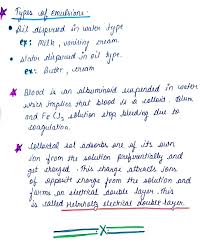 * Types of emulsions:
• Oil dispersed in water type
ex: Milk, vanishing cream
• Water dispersed in oil type.
ex: Butter, cream
* Blood is an albuminoid suspended in water
which implies that blood is a colloid. Alum
and FeCl3 solution stop bleeding due to
coagulation.
* Colloidal sol adsorbs one of its own
ion from the solution preferentially and
get charged. This charge attracts ions
of opposite charge from the solution and
forms an electrical double layer. This
is called Helmholtz electrical double layer
X